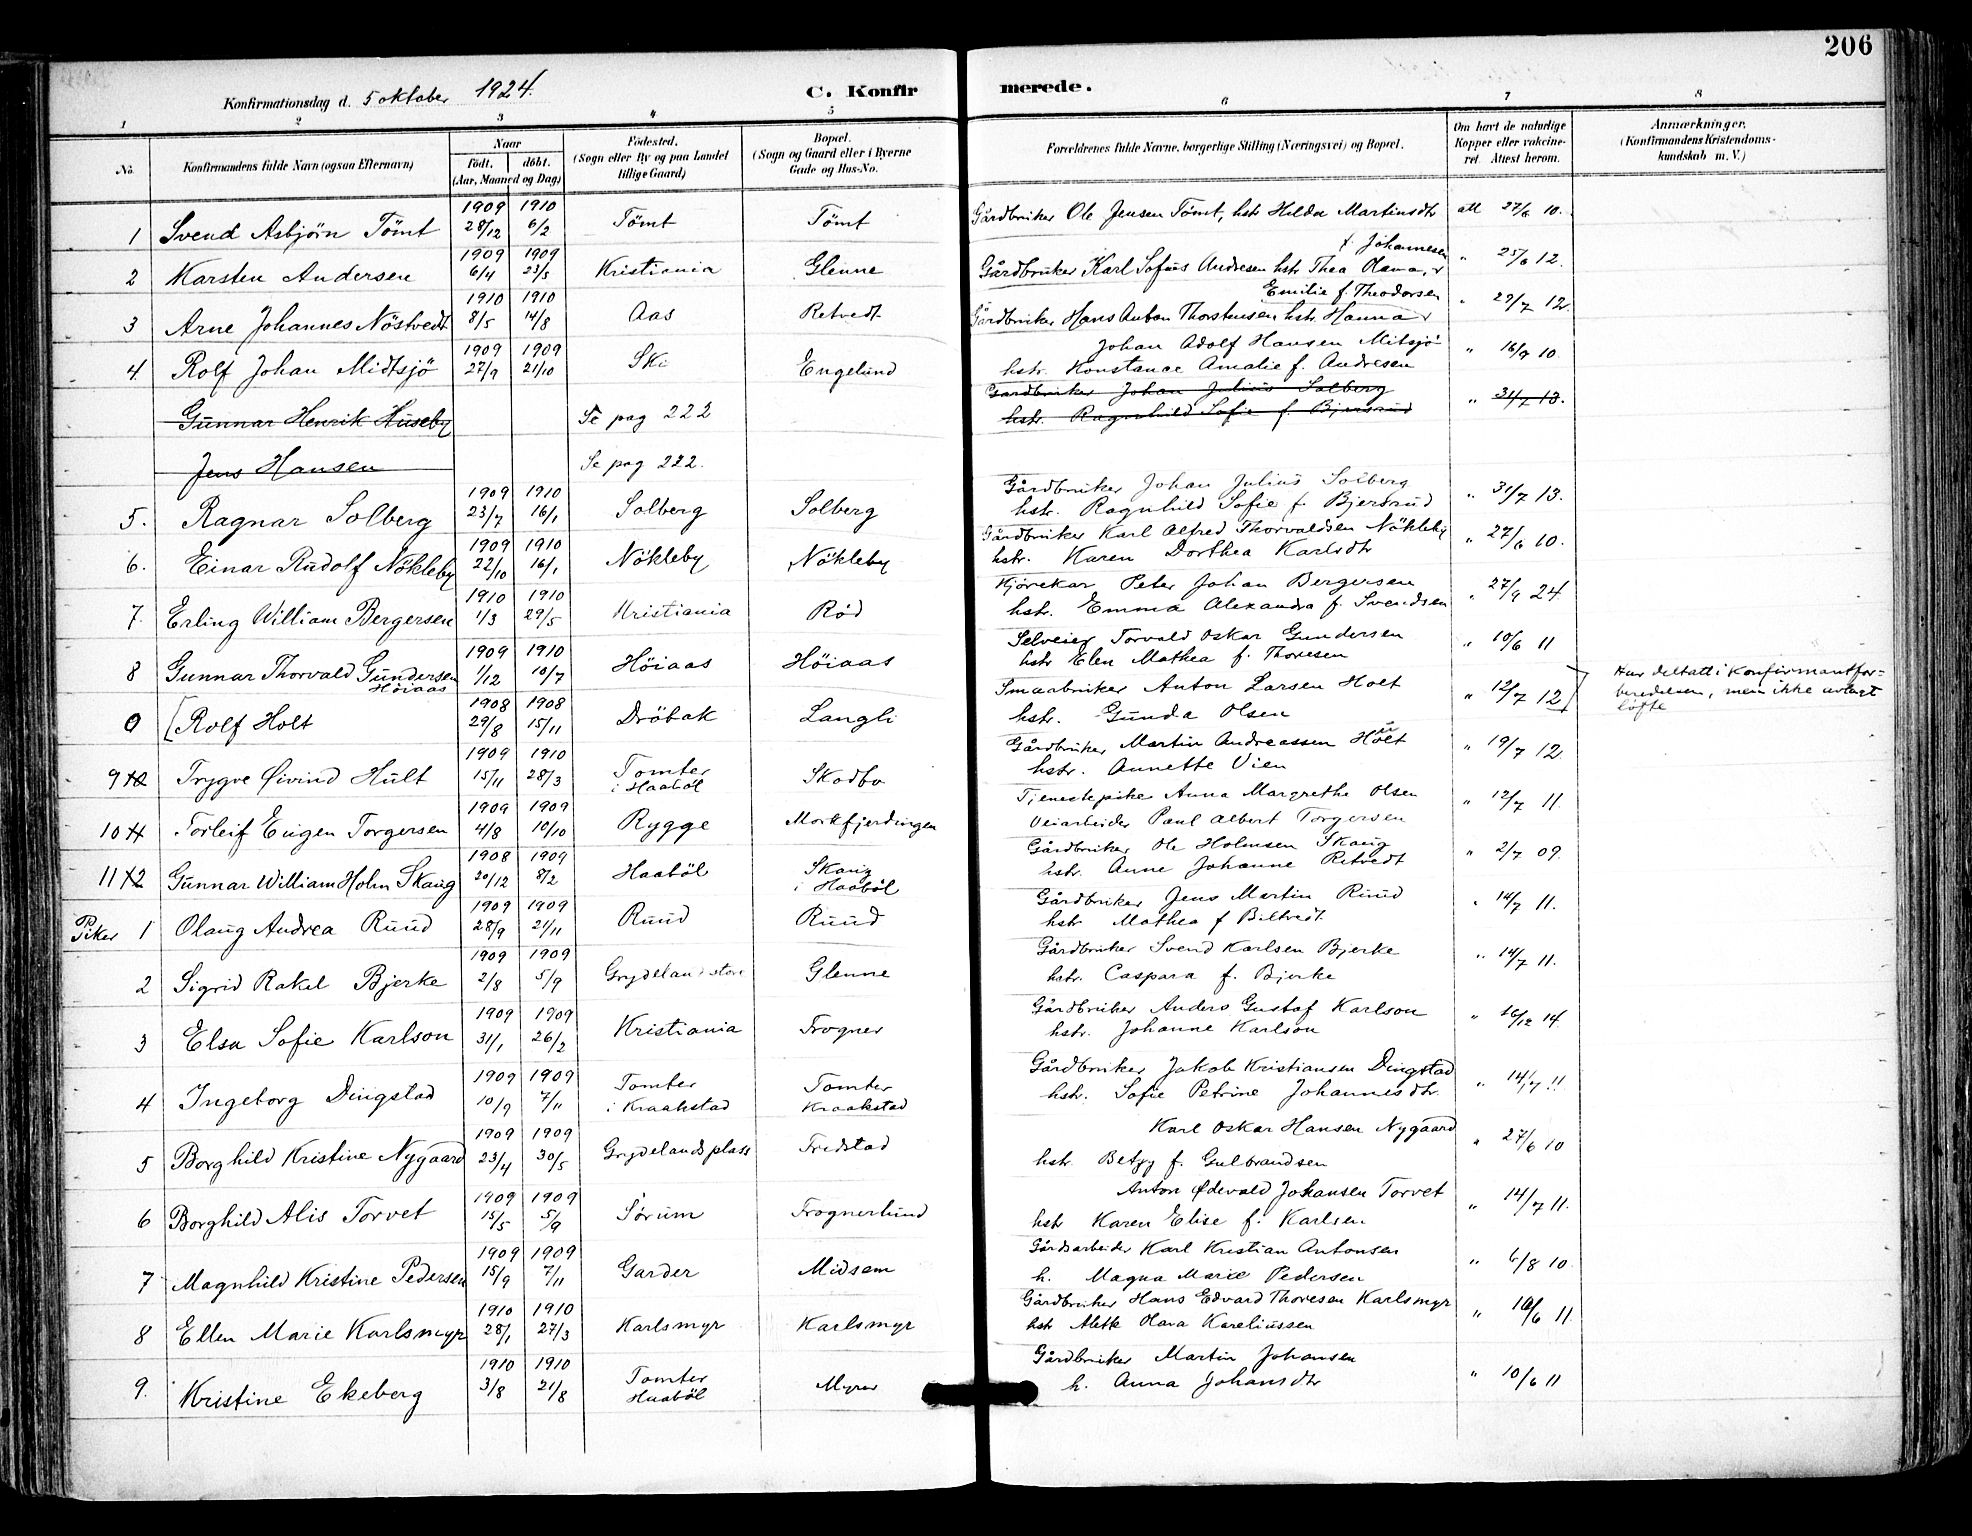 206
Konfirmationsdag d. 5 oktober 1924.
C. Konfirmerede.
1 2 3 4 5 6 7 8
No. Konfirmandens fulde Navn (ogsaa Efternavn) Naar født. døbt. (Aar, Maaned og Dag) Fødested. (Sogn eller By og paa Landet tillige Gaard) Bopæl. (Sogn og Gaard eller i Byerne Gade og Hus-No. Forældrenes fulde Navne, borgerlige Stilling (Næringsvei) og Bopæl. Om havt de naturlige Kopper eller vakcineret. Attest herom. Anmærkninger. (Konfirmandens Kristendomskundskab m. V.)
1909 1910
1 Svend Asbjørn Tömt 28/12 6/2 Tömt Tömt Gårdbruker Ole Jensen Tömt, hstr Hilda Martinsdtr att 27/6 10.
1909 1909 f. Johannesen
2 Karsten Andersen 6/4 23/5 Kristiania Glenne Gårdbruker Karl Sofus Andresen hstr Thea Olava " 25/6 12.
1910 1910 Emilie f. Theodorsen
3 Arne Johannes Nöstvedt 8/5 14/8 Aas Retvedt Gårdbruker Hans Anton Thorstensen hstr. Hanna " 29/7 12.
1909 1909 Johan Adolf Hansen Mitsjö
4 Rolf Johan Midtsjö 27/9 21/10 Ski Engelund hstr. Konstance Amalie f. Andresen " 16/9 10
Gårdbruker Johan Julius Solberg
Gunnar Henrik Huseby Se pag 222 hstr. Ragnhild Sofie f. Bjersrud " 31/7 13.
Jens Hansen Se pag 222.
1909 1910 Gårdbruker Johan Julius Solberg
5. Ragnar Solberg 23/7 16/1 Solberg Solberg hstr. Ragnhild Sofie f. Bjersrud " 31/7 13.
1909 1910 Gårdbruker Karl Alfred Thorvaldsen Nökleby
6. Einar Rudolf Nökleby 22/10 16/1 Nökleby Nökleby hstr. Karen Dorthea Karlsdtr " 27/6 10.
1910 1910 Kjørekar Peter Johan Bergersen
7. Erling William Bergersen 1/3 29/5 Kristiania Rød hstr. Emma Alexandra f. Svendsen " 27/9 24
1909 1910 Selveier Torvald Oskar Gundersen
8 Gunnar Thorvald Gundersen 1/12 10/7 Höiaas Höiaas hstr Elen Mathea f. Thoresen " 10/6 11
Höiaas
1908 1908 Smaabruker Anton Larsen Holt
0 [Rolf Holt 29/8 15/11 Dröbak Langli hstr. Gunda Olsen " 12/7 12 Har deltatt i Konfirmantforberedelsen, men ikke avlagt løfte
1909 1910 Gårdbruker Martin Andreassen Hult
9 10 Trygve Øivind Hult 15/11 28/3 Tomter i Haaböl Skodbo hstr. Annette Vien " 19/7 12.
1909 1909 Tjenestepike Anna Margrethe Olsen
10 11 Torleif Eugen Torgersen 4/8 10/10 Rygge Morkfjerdingen Veiarbeider Paul Albert Torgersen " 12/7 11.
1908 1909 Gårdbruker Ole Holmsen Skaug
11 12 Gunnar William Holm Skaug 20/12 8/2 Haaböl Skaug i Haaböl hstr. Anne Johanne Retvedt " 2/7 09.
1909 1909 Gårdbruker Jens Martin Ruud
Piker 1 Olaug Andrea Ruud 28/9 21/11 Ruud Ruud hstr Mathea f Biltvedt " 14/7 11.
1909 1909 Gårdbruker Svend Karlsen Bjerke
2 Sigrid Rakel Bjerke 2/8 5/9 Grydeland store Glenne hstr. Caspara f. Bjerke " 14/7 11.
1909 1909 Gårdbruker Anders Gustaf Karlson
3 Elsa Sofie Karlson 31/1 26/2 Kristiania Frogner hstr. Johanne Karlson " 16/12 14.
1909 1909 Gårdbruker Jakob Kristiansen Dingstad
4 Ingeborg Dingstad 10/9 7/11 Tomter i Kraakstad Tomter Kraakstad hstr. Sofie Petrine Johannesdtr. " 14/7 11
1909 1909 Karl Oskar Hansen Nygaard
5 Borghild Kristine Nygaard 23/4 30/5 Grydelandsplass Fredstad hstr. Betzy f. Gulbrandsen " 27/6 10
1909 1909 Anton Ødevald Johansen Torvet
6 Borghild Alis Torvet 15/5 5/9 Sørum Frognerlund hstr Karen Elise f. Karlsen " 14/7 11.
1909 1909 Gårdsarbeider Karl Kristian Antonsen
7 Magnhild Kristine Pedersen 15/9 7/11 Garder Midsem h. Magna Marie Pedersen " 6/8 10.
1910 1910 Gårdbruker Hans Edvard Thoresen Karlsmyr
8 Ellen Marie Karlsmyr 28/1 27/3 Karlsmyr Karlsmyr hstr Alette Hava Kareliussen " 10/6 11.
1910 1910 Gårdbruker Martin Johansen
9. Kristine Ekeberg 3/8 21/8 Tomter Haaböl Myrer h. Anna Johansdtr " 10/6 11